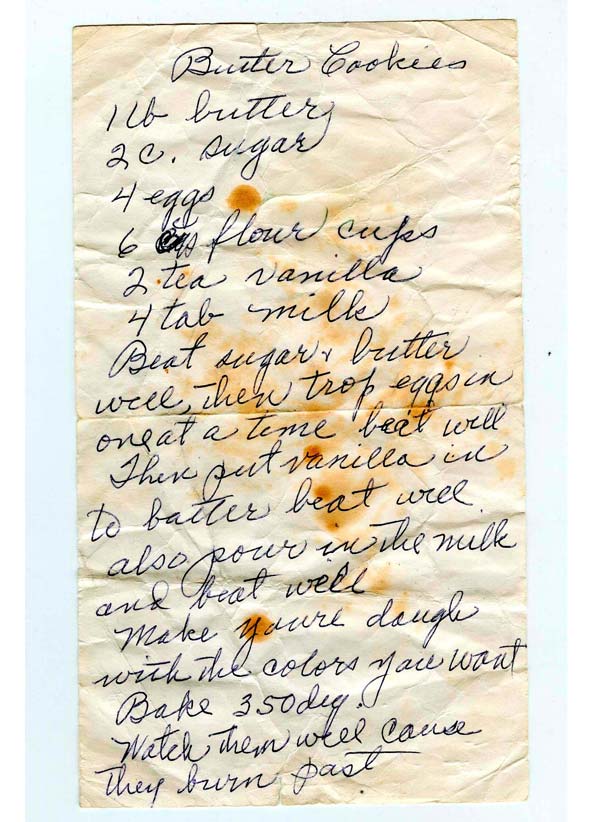 Butter Cookies
1 lb butter
2 c. sugar
4 eggs
6 flour cups
2 tea vanilla
4 tab milk
Beat sugar & butter
well, then trop eggs in
one at a time beat well
Then put vanilla in
to batter beat well
also pour in the milk
and beat well
Make youre dough
with the colors you want
Bake 350 deg.
Watch them well cause
they burn past